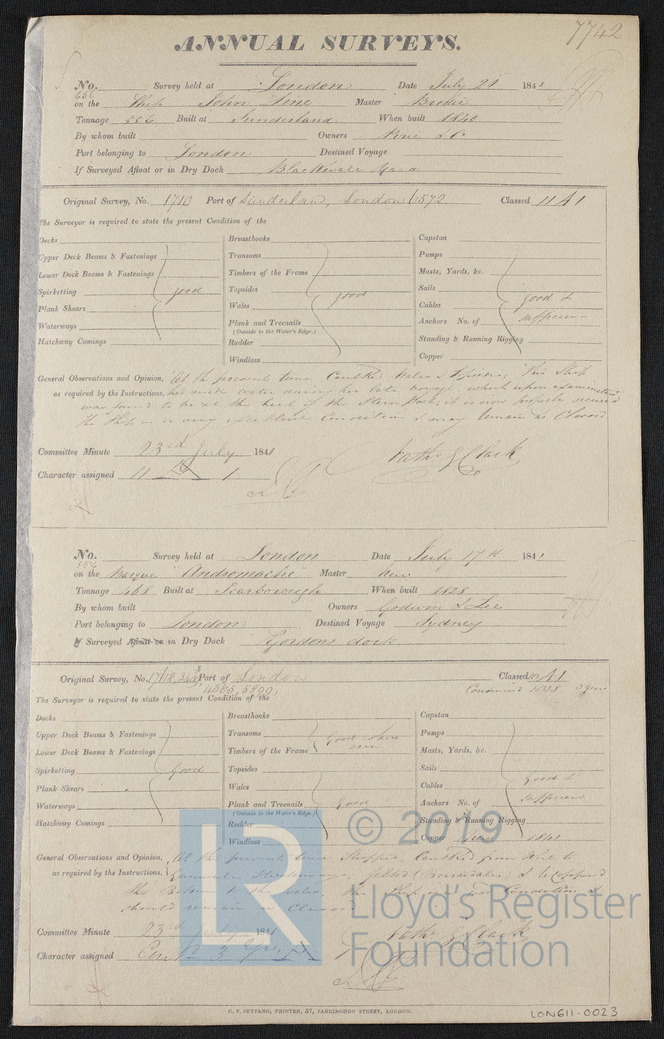 7742
ANNUAL SURVEYS.
No. Survey held at London Date July 21 1841
656
on the Ship John Line Master Brodie
Tonnage 556 Built at Sunderland When built 1840
By whom built Owners Line & Co
Port belonging to London Destined Voyage
If Surveyed Afloat or in Dry Dock Blackwall
Original Survey, No. 1710 Port of Sunderland, London 6572 Classed 11 A 1
The Surveyor is required to state the present Condition of the
Decks Breasthooks Capstan
Upper Deck Beams & Fastenings Transoms Pumps
Lower Deck Beams & Fastenings Timbers of the Frame Masts, Yards, &c.
Spirketting good Topsides good Sails good &
Plank Shears Wales Cables sufficient
Waterways Plank and Treenails Anchors No. of
(Outside to the Water's Edge.)
Hatchway Comings Rudder Standing & Running Rigging
Windlass Copper
General Observations and Opinion, At the present time Caulked Wales & Topsides, This Ship
as required by the Instructions, has made water during her late voyage which upon examination
was found to be at the heel of the Stern Post, it is now properly secured
The Ship is in very excellent Condition & may remain as Classed
Committee Minute 23rd July 1841 Nathl G Clark
Character assigned 11 A 1
No. Survey held at London Date July 17th 1841
on the Barque "Andromache" Master New
Tonnage 468 Built at Scarborough When built 1828
By whom built Owners Godwin & Lee
Port belonging to London Destined Voyage Sydney
If Surveyed Afloat or in Dry Dock Gordons dock
Original Survey, No. Port of London Classed A1
Continued 1838 3 years
The Surveyor is required to state the present Condition of the
Decks Breasthooks Capstan
Upper Deck Beams & Fastenings Transoms good Pumps
Lower Deck Beams & Fastenings Timbers of the Frame seen Masts, Yards, &c.
Spirketting Good Topsides Sails
Plank Shears Wales Cables good &
Waterways Plank and Treenails Good Anchors No. of sufficient
(Outside to the Water's Edge.)
Hatchway Comings Rudder Standing & Running Rigging
Windlass Copper 1841
General Observations and Opinion, At the present time Stripped, Caulked from
as required by the Instructions,
the Bottom to the Wales. The Ship is in good Condition &
should remain as Classed
Committee Minute 23rd July 1841 Nathl G Clark
Character assigned Contd 3 Yrs A
© 2019
Lloyd's Register
Foundation
LR
C. F. SEYFANG, PRINTER, 57, FARRINGDON STREET, LONDON.
LON611-0023